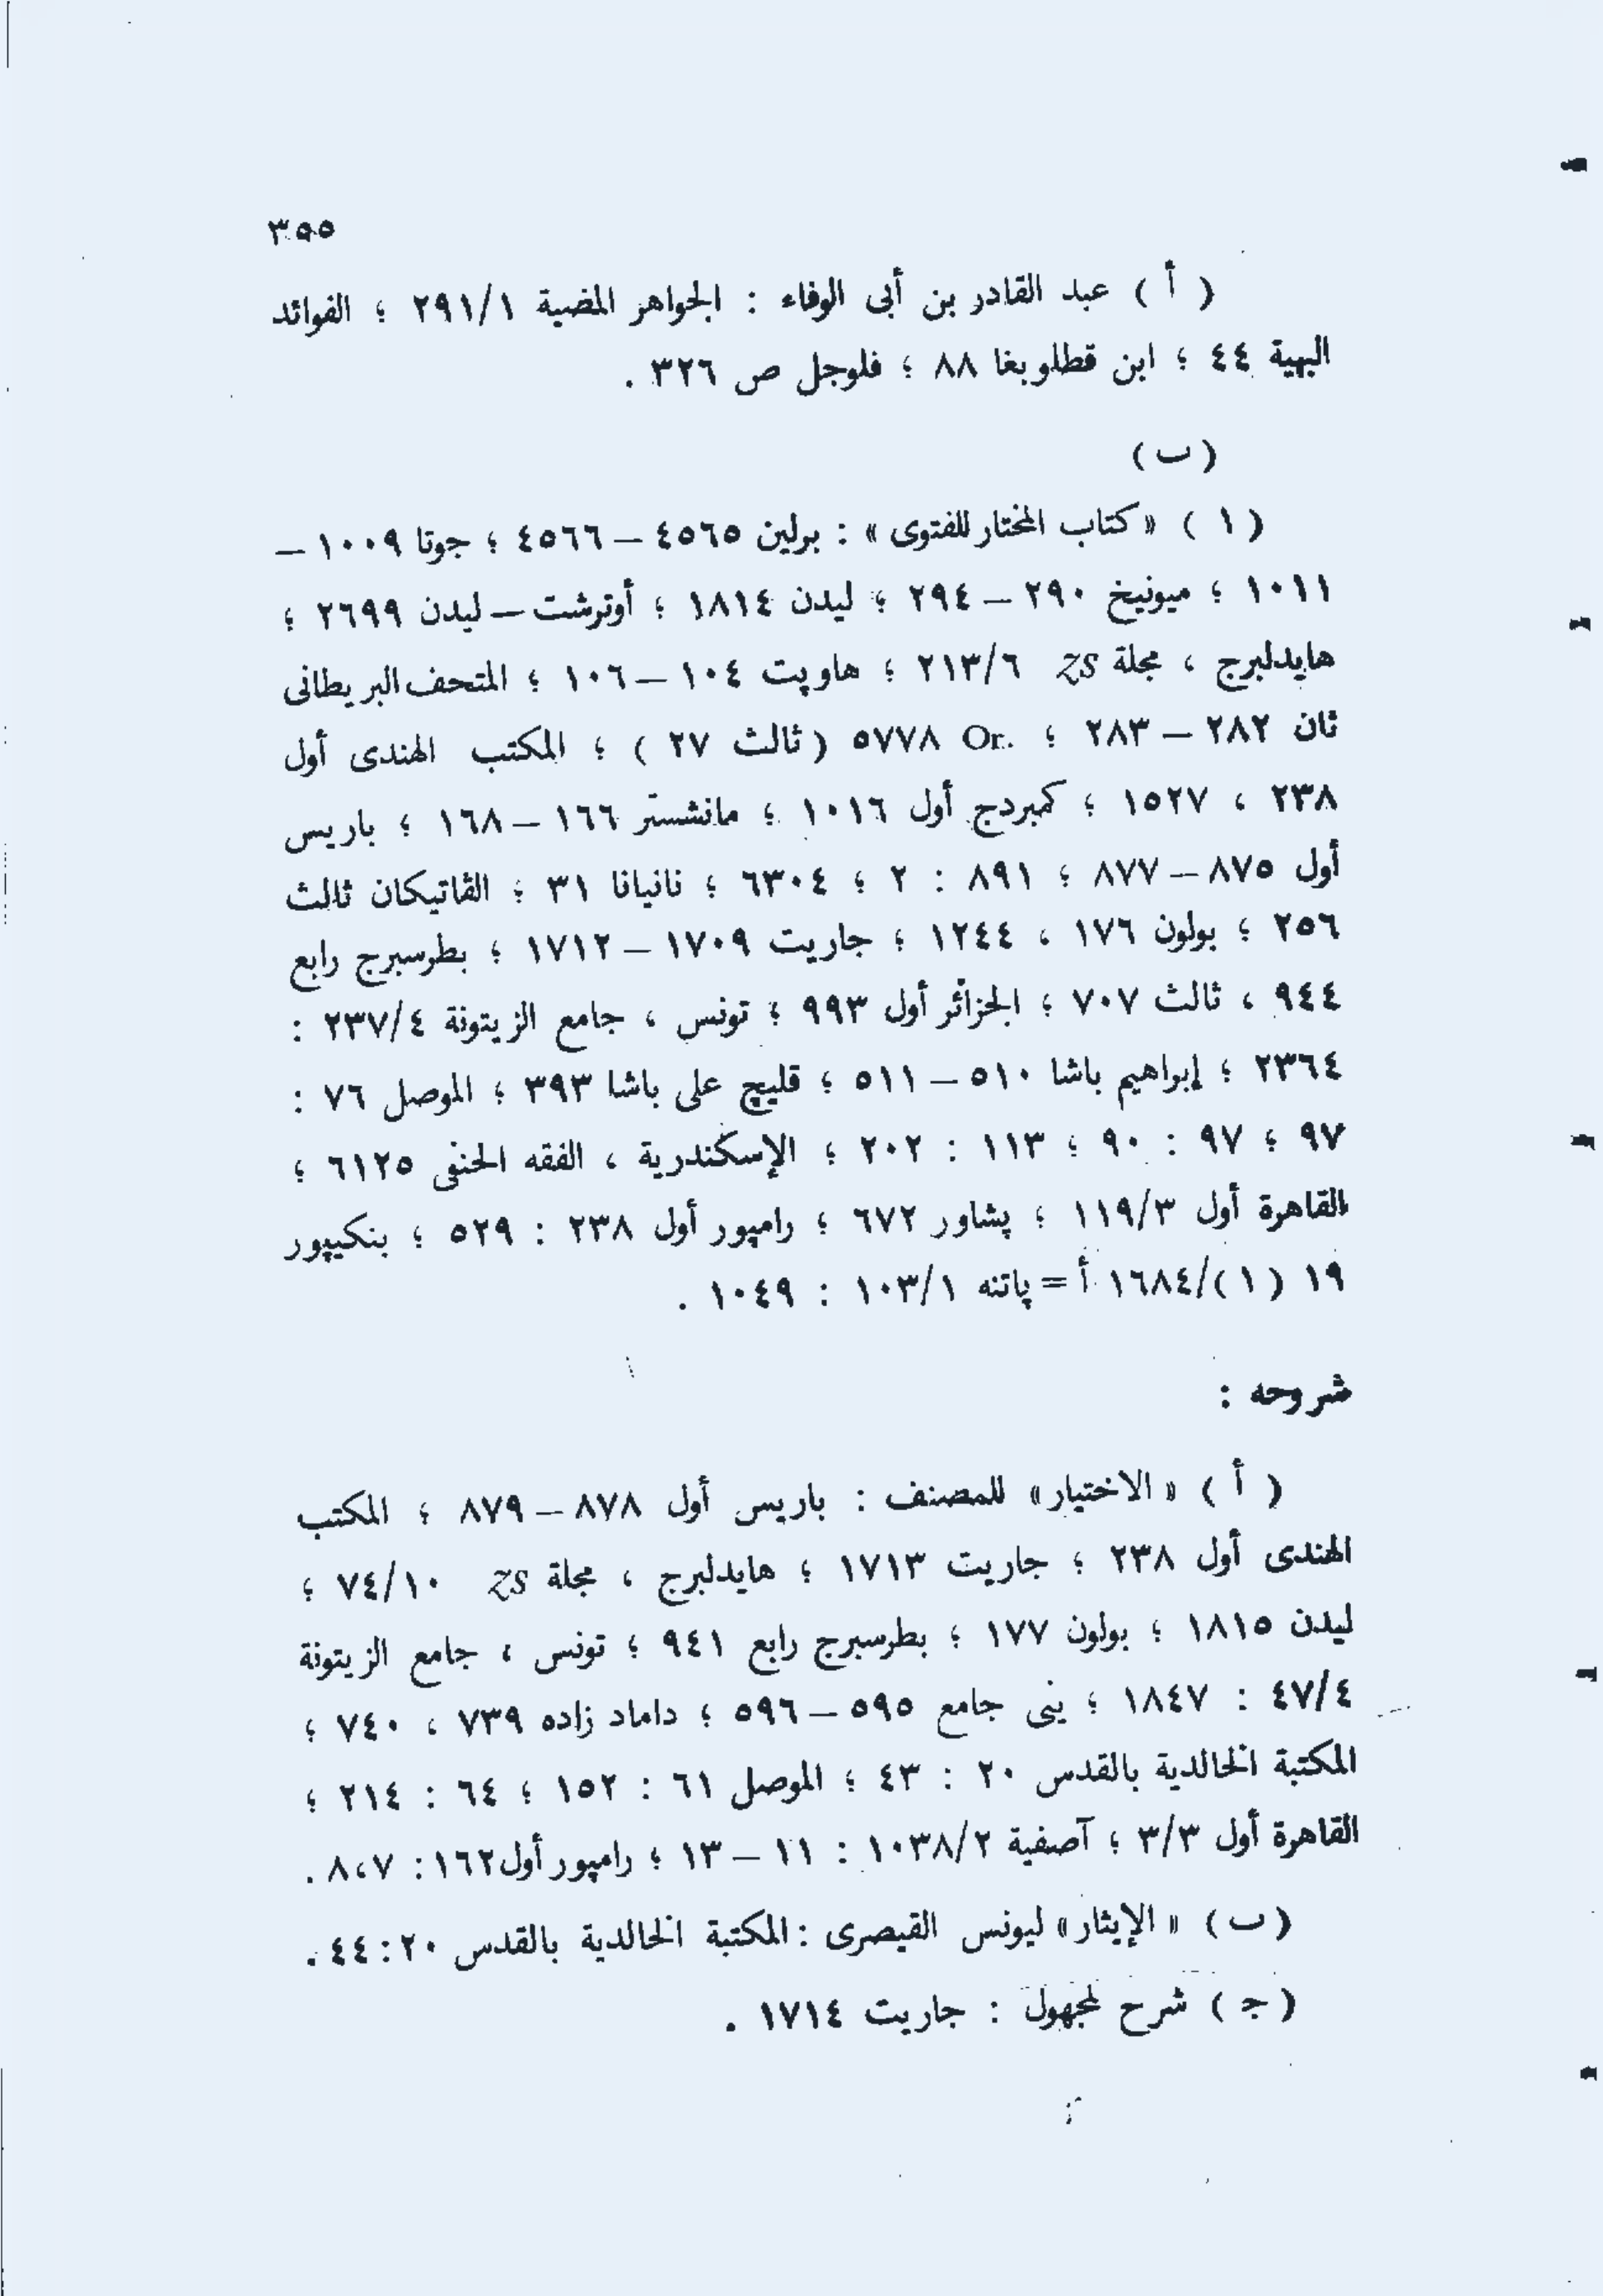 ٣٥٥
( أ ) عبد القادر بن أبى الوفاء : الجواهر المضية ٢٩١/١ ؛ الفوائد
البهية ٤٤ ؛ ابن قطلوبغا ٨٨ ؛ فلوجل ص ٣٢٦ .
( ب )
( ١ ) « كتاب المختار للفتوى » : برلين ٤٥٦٥ – ٤٥٦٦ ؛ جوتا ١٠٠٩ –
١٠١١ ؛ ميونيخ ٢٩٠ – ٢٩٤ ؛ ليدن ١٨١٤ ؛ أوترشت – ليدن ٢٦٩٩ ؛
هايدلبرج ، مجلة ZS ٢١٣/٦ ؛ هاوپت ١٠٤ – ١٠٦ ؛ المتحف البريطانى
ثان ٢٨٢ – ٢٨٣ ؛ Or. ٥٧٧٨ ( ثالث ٢٧ ) ؛ المكتب الهندى أول
٢٣٨ ، ١٥٢٧ ؛ كمبردج أول ١٠١٦ ؛ مانشستر ١٦٦ – ١٦٨ ؛ باريس
أول ٨٧٥ – ٨٧٧ ؛ ٨٩١ : ٢ ؛ ٦٣٠٤ ؛ نانيانا ٣١ ؛ الڤاتيكان ثالث
٢٥٦ ؛ بولون ١٧٦ ، ١٢٤٤ ؛ جاريت ١٧٠٩ – ١٧١٢ ؛ بطرسبرج رابع
٩٤٤ ، ثالث ٧٠٧ ؛ الجزائر أول ٩٩٣ ؛ تونس ، جامع الزيتونة ٢٣٧/٤ :
٢٣٦٤ ؛ إبراهيم باشا ٥١٠ – ٥١١ ؛ قليچ على باشا ٣٩٣ ؛ الموصل ٧٦ :
٩٧ ؛ ٩٧ : ٩٠ ؛ ١١٣ : ٢٠٢ ؛ الإسكندرية ، الفقه الحنفى ٦١٢٥ ؛
القاهرة أول ١١٩/٣ ؛ پشاور ٦٧٢ ؛ رامپور أول ٢٣٨ : ٥٢٩ ؛ بنكيپور
١٩ ( ١ )/١٦٨٤ أ = پاتنه ١٠٣/١ : ١٠٤٩ .
شروحه :
( أ ) « الاختيار » للمصنف : باريس أول ٨٧٨ – ٨٧٩ ؛ المكتب
الهندى أول ٢٣٨ ؛ جاريت ١٧١٣ ؛ هايدلبرج ، مجلة ZS ٧٤/١٠ ؛
ليدن ١٨١٥ ؛ بولون ١٧٧ ؛ بطرسبرج رابع ٩٤١ ؛ تونس ، جامع الزيتونة
٤٧/٤ : ١٨٤٧ ؛ ينى جامع ٥٩٥ – ٥٩٦ ؛ داماد زاده ٧٣٩ ، ٧٤٠ ؛
المكتبة الخالدية بالقدس ٢٠ : ٤٣ ؛ الموصل ٦١ : ١٥٢ ؛ ٦٤ : ٢١٤ ؛
القاهرة أول ٣/٣ ؛ آصفية ١٠٣٨/٢ : ١١ – ١٣ ؛ رامپور أول ١٦٢ : ٨،٧ .
( ب ) « الإيثار » ليونس القيصرى : المكتبة الخالدية بالقدس ٢٠ : ٤٤ .
( ج ) شرح لمجهول : جاريت ١٧١٤ .